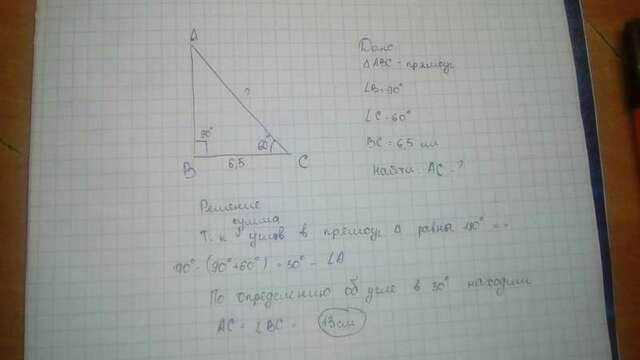 A
?
90°
60°
B
6,5
C
Дано
△ABC - прямоуг
∠B=90°
∠C=60°
BC = 6,5 см
Найти: AC - ?
Решение
сумма
Т. к углов в прямоуг △ равны
(90°+60°) = 30° - ∠A
По определению об угле в 30° находим
AC = 13см